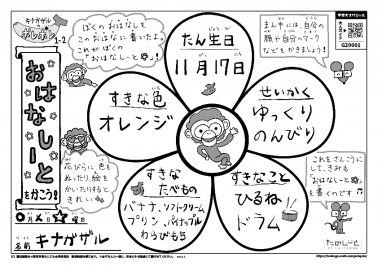 キナガザル
1-2
ぼくのおはなしを
このおはなに書いたよ。
これがぼくの
「おはなしーと」
まん中には、自分の
顔や自分のマーク
などをかきましょう!
G20001
おはなしーと
をかこう!
たん生日
11月17日
すきな色
オレンジ
せいかく
ゆっくり
のんびり
花びらに色を
ぬったり、絵を
かいたりすると
きれい
すきな
たべもの
バナナ、ソフトクリーム
プリン、パイナップル
わらびもち
すきなこと
ひるね
ドラム
これをさんこうに
して、きみも
「おはなしーと」
を書くのです
月
日
曜日
名前 キナガザル